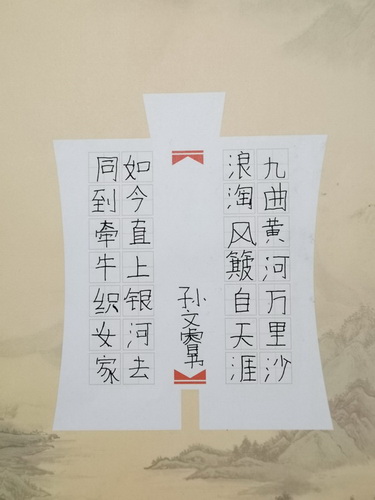 九曲黄河万里沙
浪淘风簸自天涯
孙文
如今直上银河去
同到牵牛织女家